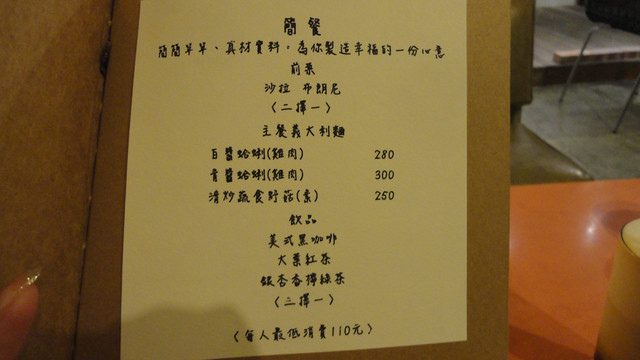 簡餐
簡簡單單、真材實料，為你製造幸福的一份心意
前菜
沙拉 布朗尼
〈二擇一〉
主餐義大利麵
白醬蛤蜊(雞肉) 280
青醬蛤蜊(雞肉) 300
清炒蔬食野菇(素) 250
飲品
美式黑咖啡
大葉紅茶
銀杏香檸綠茶
〈三擇一〉
〈每人最低消費110元〉